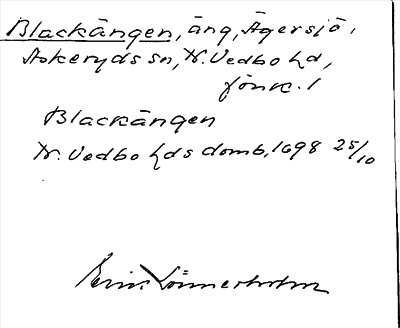 Blackängen, äng, Ägersjö,
Askeryds sn, N. Vedbo hd,
Jönk. l
Blackängen
N. Vedbo hds domb. 1698 25/10